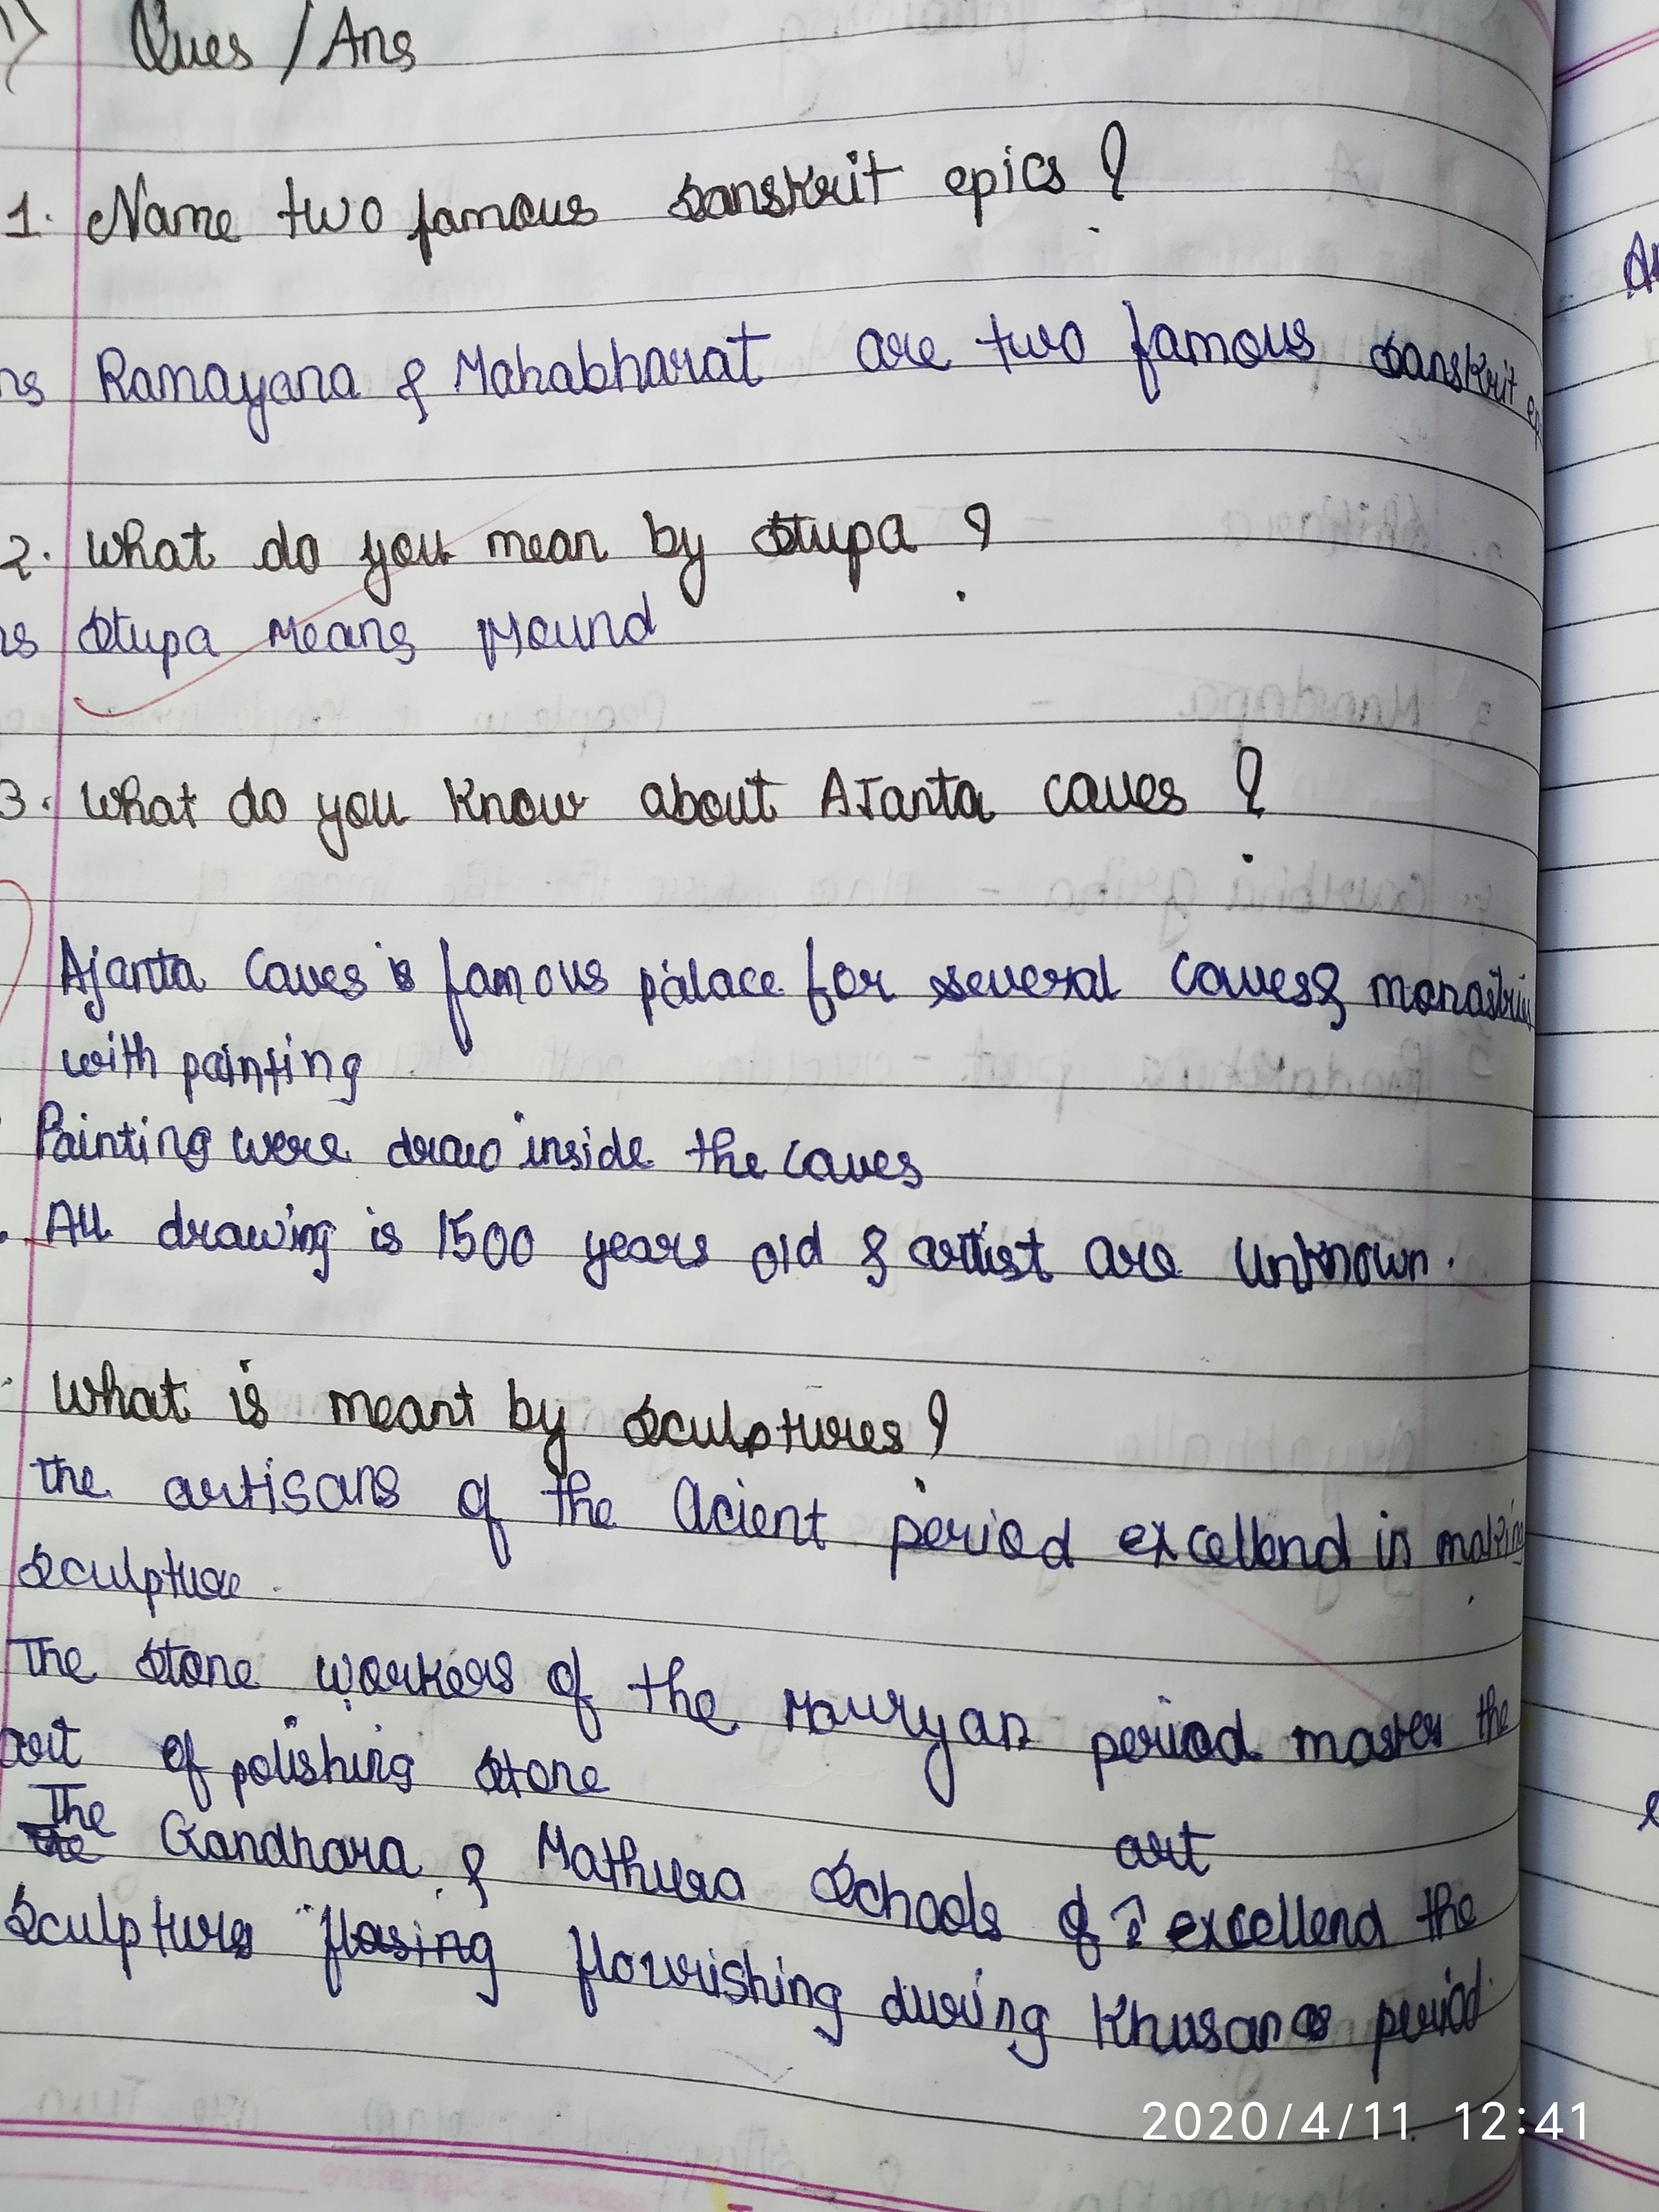 Ques / Ans
1. Name two famous Sanskrit epics ?
Ramayana & Mahabharat are two famous Sanskrit
2. What do you mean by Stupa ?
Stupa Means Mound
3. What do you know about AJanta caves ?
Ajanta Caves is famous palace for several caves &
with painting
Painting were draw inside the caves
All drawing is 1500 years old & artist are Unknown.
What is meant by Sculptures ?
The artisans of the Acient period excellend in making
Sculpture.
The Stone workers of the Mauryan period master the
art of polishing Stone
The Gandhara & Mathura Schools of art excellend the
Sculpture flourishing during Khusana period
2020/4/11 12:41